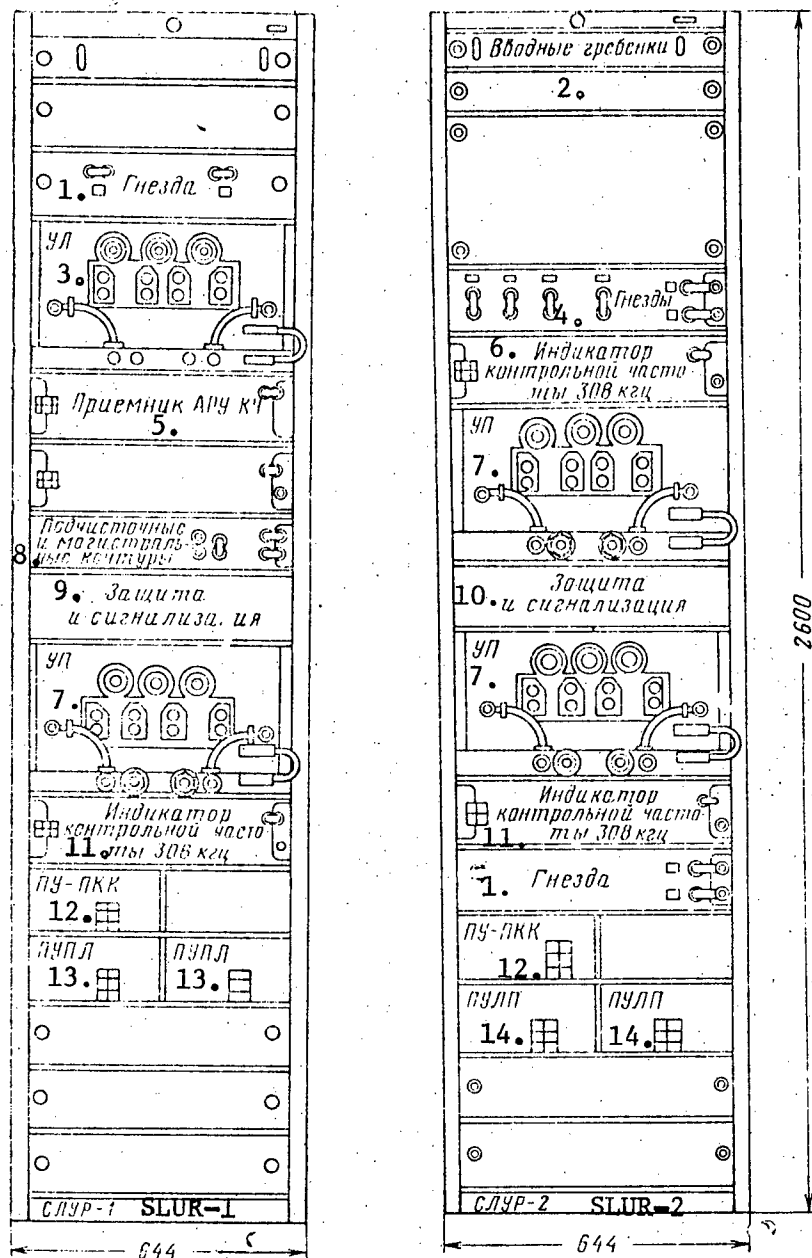 1. Гнезда
УЛ
3.
Приемник АРУ КЧ
5.
Подчисточные
и магистраль-
8. ные контуры
9. Защита
и сигнализа. ия
УП
7.
Индикатор
контрольной часто
11. ты 308 кгц
ПУ-ПКК
12.
ПУПЛ ПУПЛ
13. 13.
СЛУР-1 SLUR-1
644
Вводные гребенки
2.
Гнезды
4.
6. Индикатор
контрольной часто
ты 308 кгц
УП
7.
Защита
10. и сигнализация
УП
7.
Индикатор
контрольной часто
11. ты 308 кгц
1. Гнезда
ПУ-ПКК
12.
ПУЛП ПУЛП
14. 14.
СЛУР-2 SLUR-2
644
2600